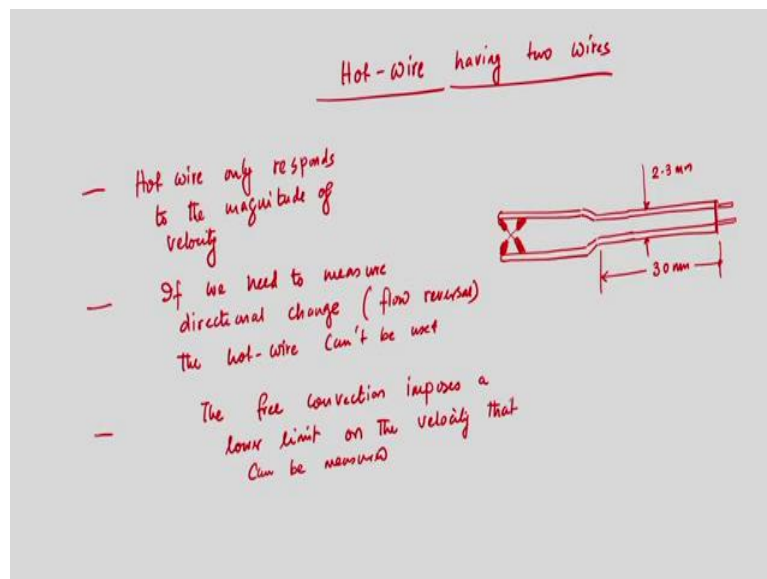 Hot-wire having two wires
— Hot wire only responds
to the magnitude of
velocity
— If we need to measure
directional change (flow reversal)
the hot-wire can't be used
— The free convection imposes a
lower limit on the velocity that
can be measured
2.3 mm
30 mm